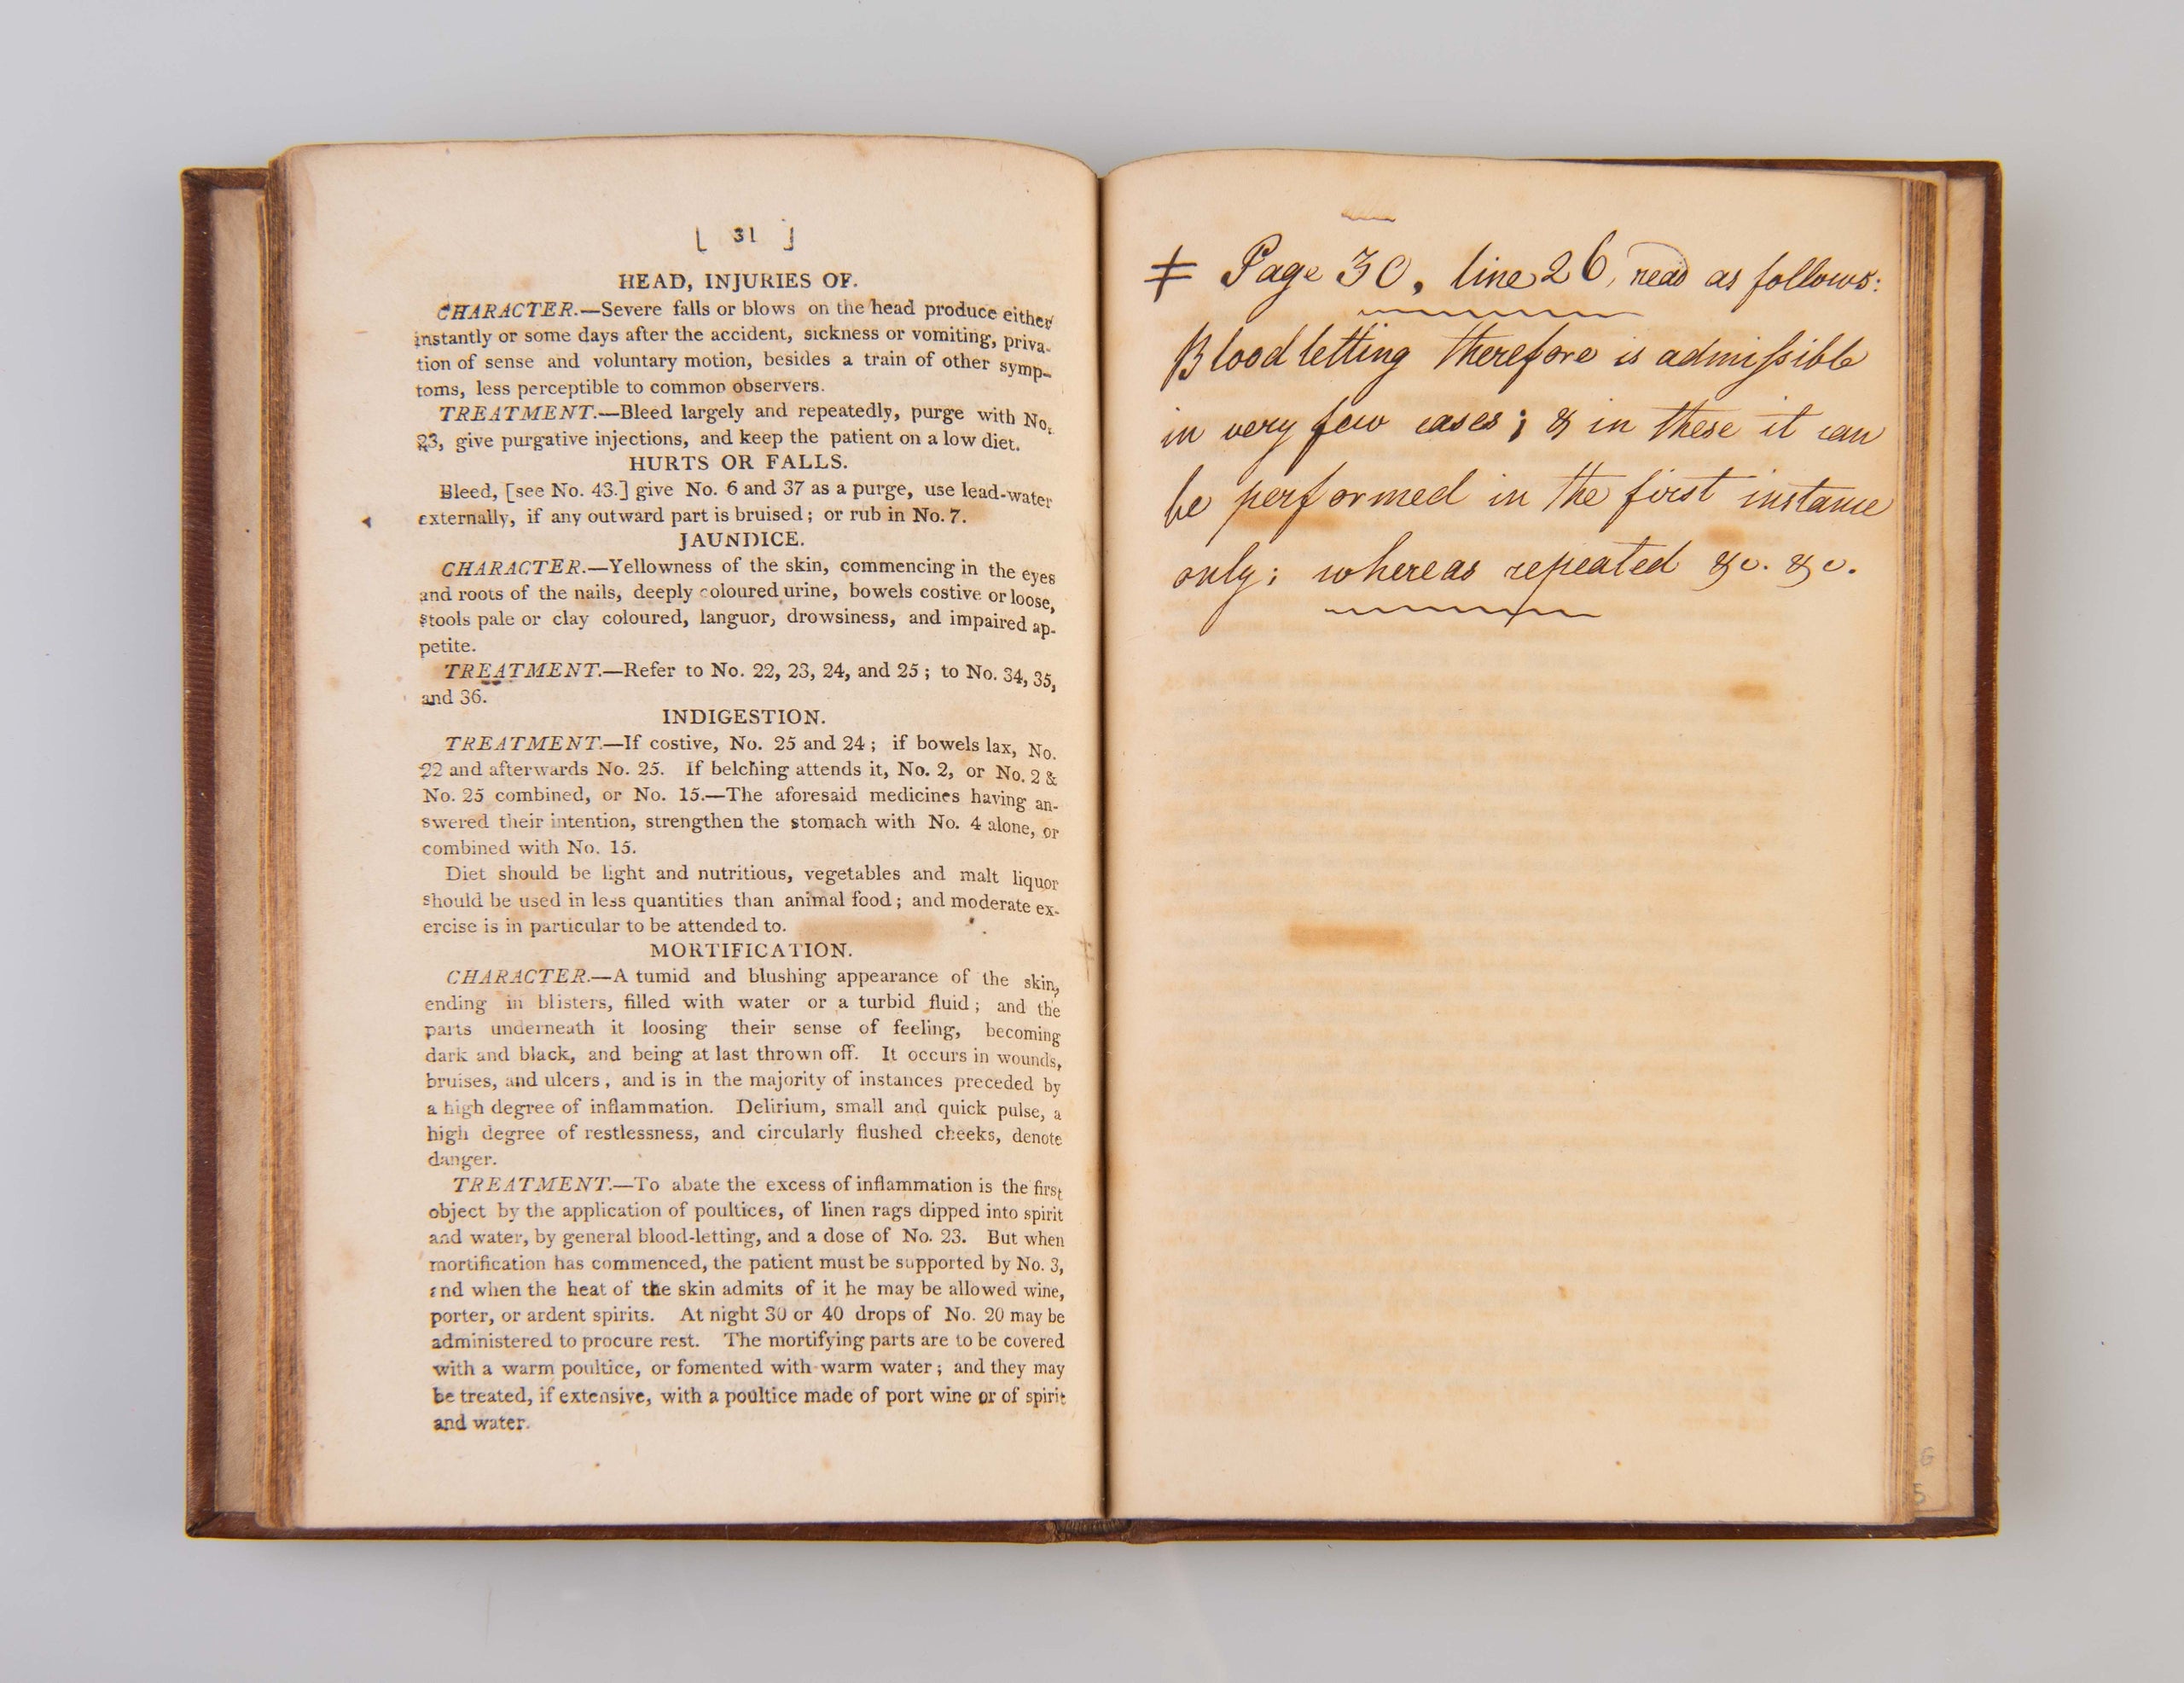 [ 31 ]
HEAD, INJURIES OF.
CHARACTER.—Severe falls or blows on the head produce either
instantly or some days after the accident, sickness or vomiting, priva-
tion of sense and voluntary motion, besides a train of other symp-
toms, less perceptible to common observers.
TREATMENT.—Bleed largely and repeatedly, purge with No.
23, give purgative injections, and keep the patient on a low diet.
HURTS OR FALLS.
Bleed, [see No. 43.] give No. 6 and 37 as a purge, use lead-water
externally, if any outward part is bruised; or rub in No. 7.
JAUNDICE.
CHARACTER.—Yellowness of the skin, commencing in the eyes
and roots of the nails, deeply coloured urine, bowels costive or loose,
stools pale or clay coloured, languor, drowsiness, and impaired ap-
petite.
TREATMENT.—Refer to No. 22, 23, 24, and 25; to No. 34, 35,
and 36.
INDIGESTION.
TREATMENT.—If costive, No. 25 and 24; if bowels lax, No.
22 and afterwards No. 25. If belching attends it, No. 2, or No. 2 &
No. 25 combined, or No. 15.—The aforesaid medicines having an-
swered their intention, strengthen the stomach with No. 4 alone, or
combined with No. 15.
Diet should be light and nutritious, vegetables and malt liquor
should be used in less quantities than animal food; and moderate ex-
ercise is in particular to be attended to.
MORTIFICATION.
CHARACTER.—A tumid and blushing appearance of the skin,
ending in blisters, filled with water or a turbid fluid; and the
parts underneath it loosing their sense of feeling, becoming
dark and black, and being at last thrown off. It occurs in wounds,
bruises, and ulcers, and is in the majority of instances preceded by
a high degree of inflammation. Delirium, small and quick pulse, a
high degree of restlessness, and circularly flushed cheeks, denote
danger.
TREATMENT.—To abate the excess of inflammation is the first
object by the application of poultices, of linen rags dipped into spirit
and water, by general blood-letting, and a dose of No. 23. But when
mortification has commenced, the patient must be supported by No. 3,
and when the heat of the skin admits of it he may be allowed wine,
porter, or ardent spirits. At night 30 or 40 drops of No. 20 may be
administered to procure rest. The mortifying parts are to be covered
with a warm poultice, or fomented with warm water; and they may
be treated, if extensive, with a poultice made of port wine or of spirit
and water.
‡ Page 30, line 26, read as follows:
Blood letting therefore is admiſsible
in very few cases; & in these it can
be performed in the first instance
only; whereas repeated &c. &c.
6
5